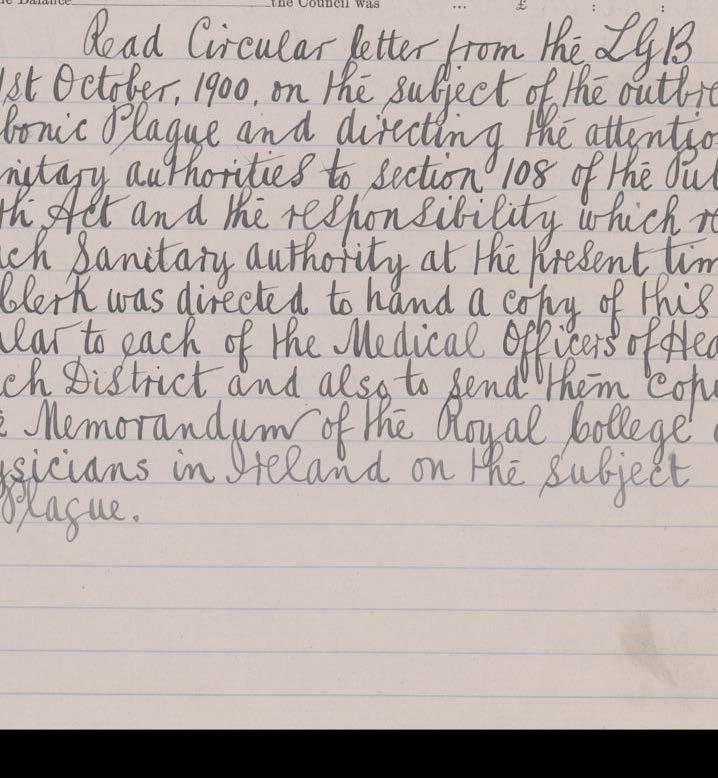 the Council was ... £ : :
Read Circular letter from the LGB
1st October, 1900, on the subject of the outbre
bonic Plague and directing the attentio
nitary authorities to section 108 of the Pub
th Act and the responsibility which re
ch Sanitary authority at the present tim
Clerk was directed to hand a copy of this
ular to each of the Medical Officers of Hea
ch District and also to send them Copi
e Memorandum of the Royal College o
ysicians in Ireland on the subject
Plague.